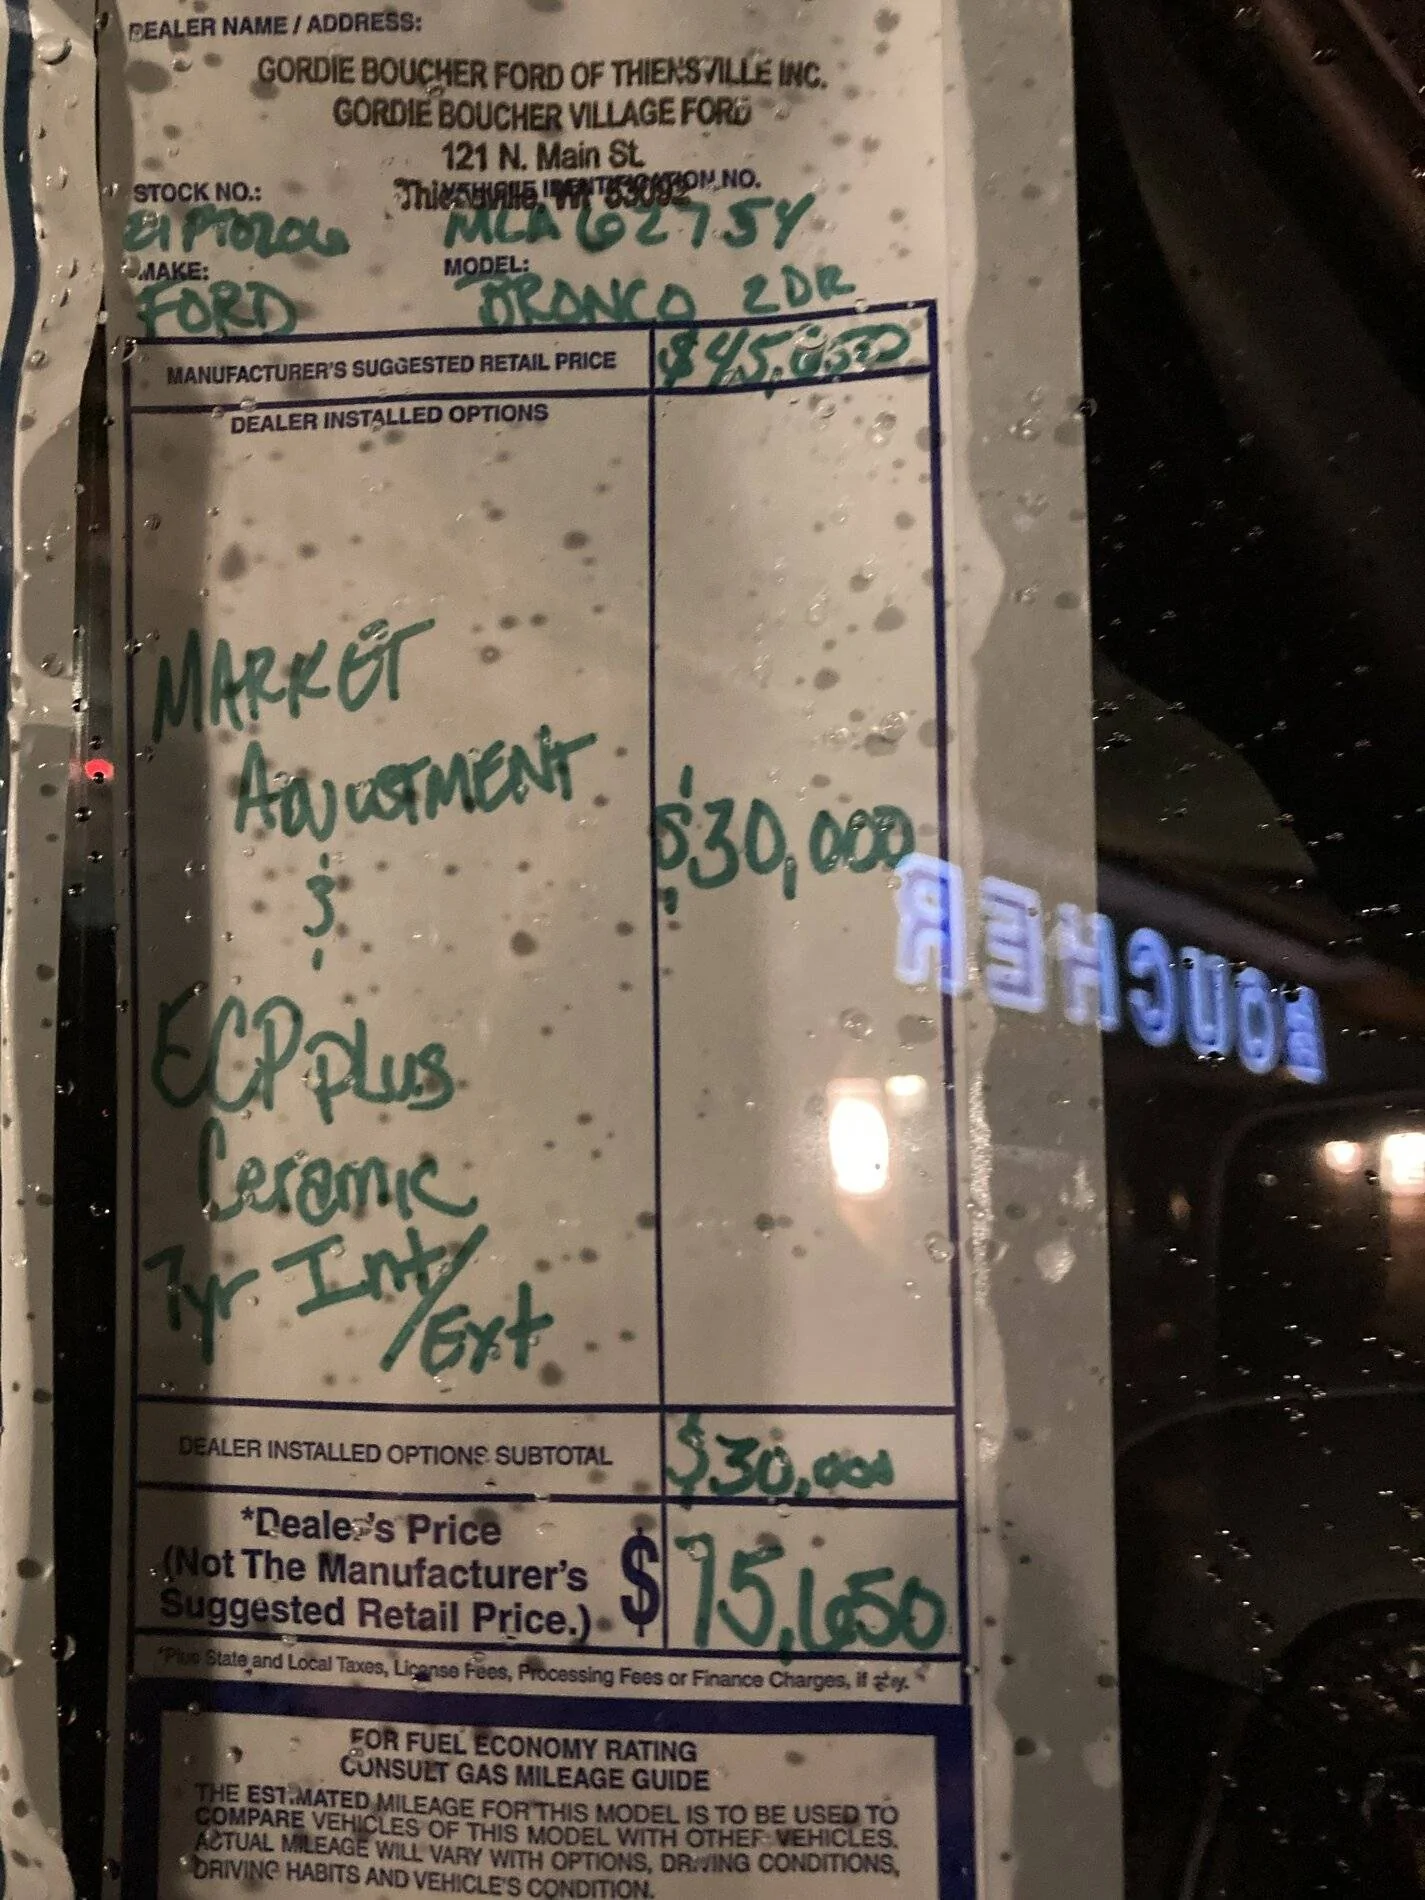 DEALER NAME / ADDRESS:
GORDIE BOUCHER FORD OF THIENSVILLE INC.
GORDIE BOUCHER VILLAGE FORD
121 N. Main St.
Thiensville, WI 53092
STOCK NO.:
VEHICLE IDENTIFICATION NO.
21PT0206
MLA62754
MAKE:
MODEL:
FORD
BRONCO 2DR
MANUFACTURER'S SUGGESTED RETAIL PRICE
$45,650
DEALER INSTALLED OPTIONS
MARKET
ADJUSTMENT
$30,000
&
BOUCHER
ECP plus
Ceramic
7yr Int/
Ext
DEALER INSTALLED OPTIONS SUBTOTAL
$30,000
*Dealer's Price
(Not The Manufacturer's
Suggested Retail Price.)
$ 75,650
*Plus State and Local Taxes, License Fees, Processing Fees or Finance Charges, if any.
FOR FUEL ECONOMY RATING
CONSULT GAS MILEAGE GUIDE
THE ESTIMATED MILEAGE FOR THIS MODEL IS TO BE USED TO
COMPARE VEHICLES OF THIS MODEL WITH OTHER VEHICLES.
ACTUAL MILEAGE WILL VARY WITH OPTIONS, DRIVING CONDITIONS,
DRIVING HABITS AND VEHICLE'S CONDITION.